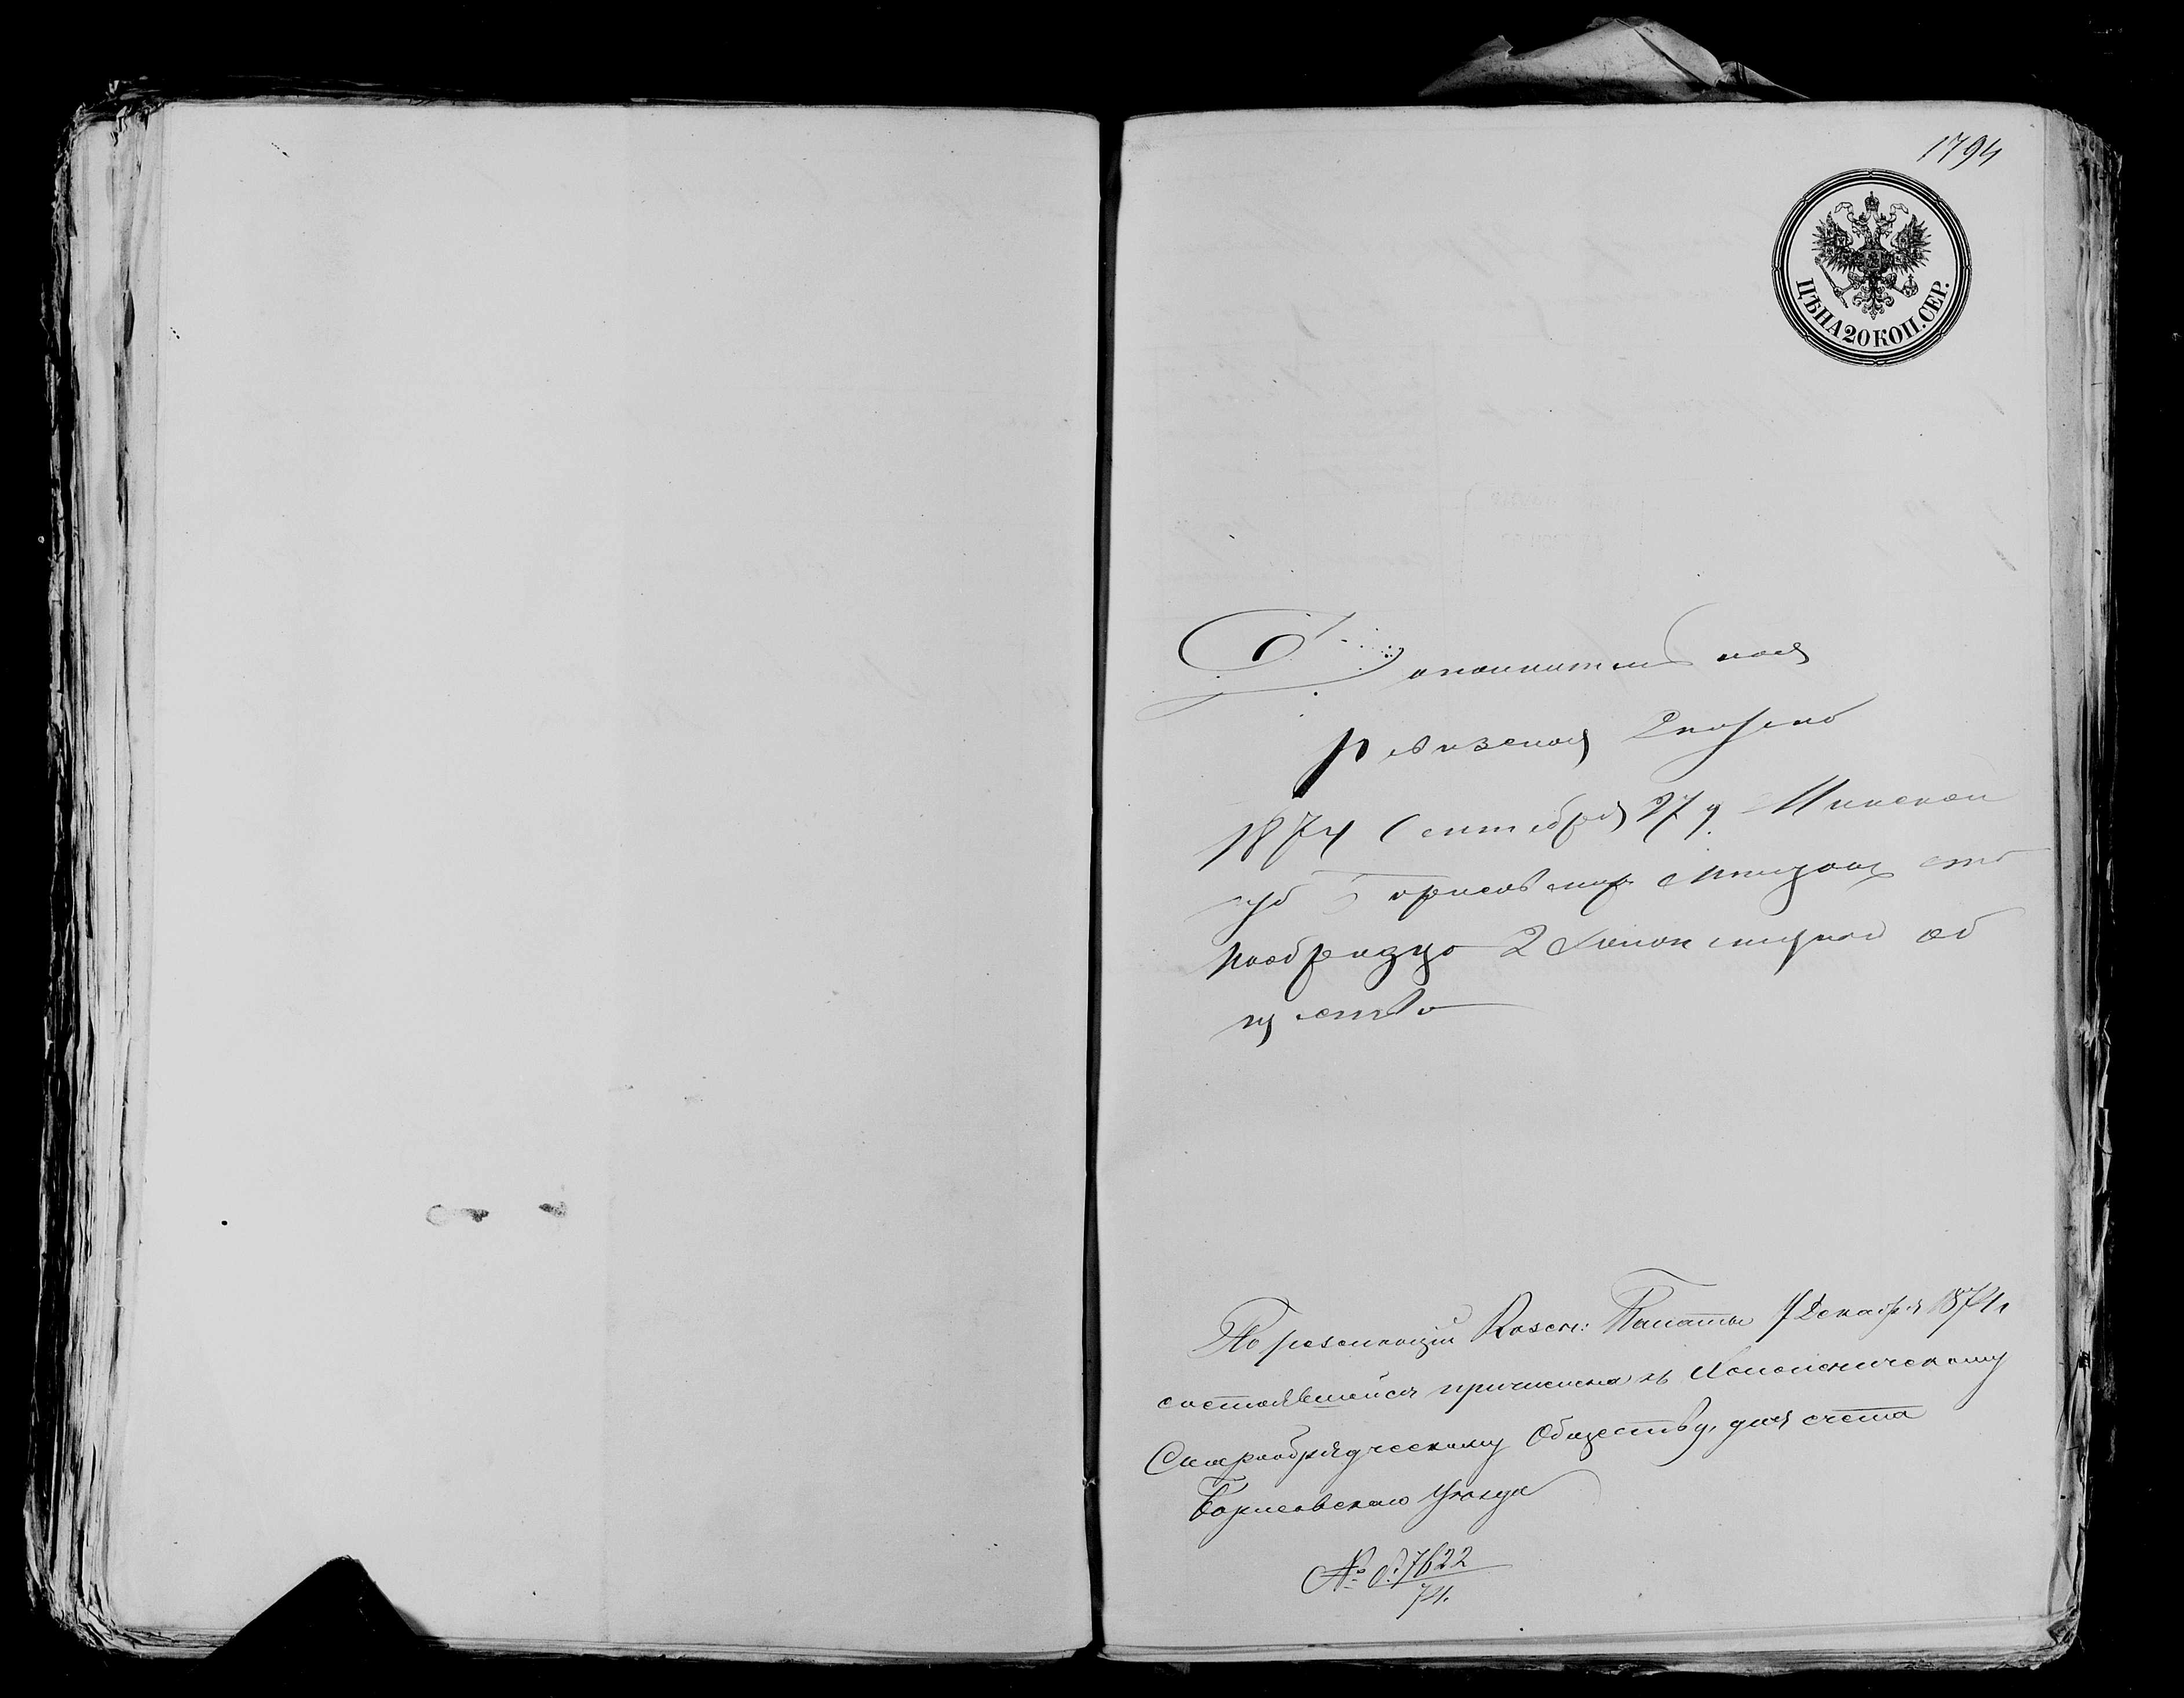 1794
ЦѢНА 20 КОП. СЕР.
Дополнительная
ревизская Сказка
1874 Сентебря 27 д Минской
губ Борисовскаго
2
щество
По резолюціи Казен: Палаты 7 Декабря 1874 г.
состоявшейся причислена къ Холопеничскому
Старообрядческому Обществу, для счета
Борисовскаго уѣзда
№ 7622
74.